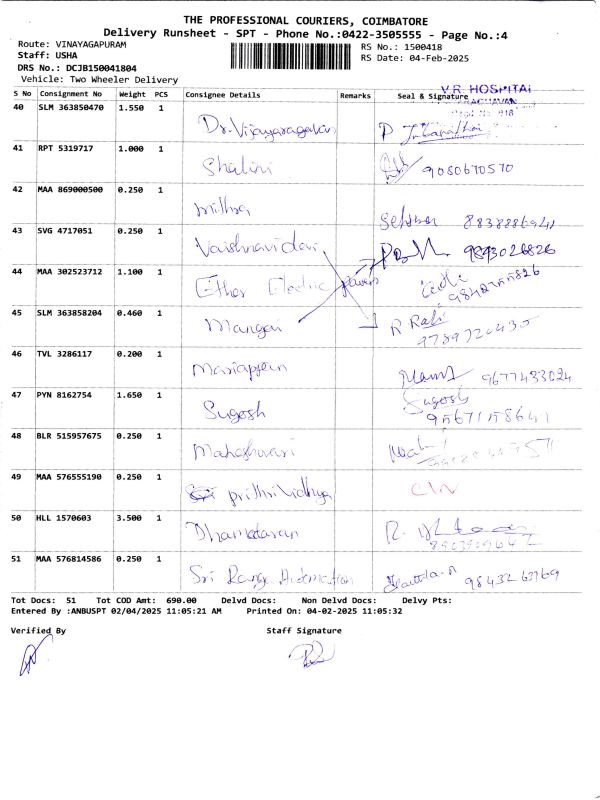 THE PROFESSIONAL COURIERS, COIMBATORE
Delivery Runsheet - SPT - Phone No.:0422-3505555 - Page No.:4
Route: VINAYAGAPURAM
RS No.: 1500418
Staff: USHA
RS Date: 04-Feb-2025
DRS No.: DCJB150041804
Vehicle: Two Wheeler Delivery
V.R. HOSPITAL
S No Consignment No Weight PCS Consignee Details Remarks Seal & Signature
40 SLM 363850470 1.550 1
Dr. Vijayaragavan
41 RPT 5319717 1.000 1
Shalini 9080670570
42 MAA 869000500 0.250 1
mithra
8838886941
43 SVG 4717051 0.250 1
Vaishnavi devi
9843026826
44 MAA 302523712 1.100 1
Ether Electric powers
45 SLM 363858204 0.460 1
Mangai R Rafi
9789720435
46 TVL 3286117 0.200 1
Mariappan
9677483024
47 PYN 8162754 1.650 1
Sugosh Sugosh
9567158641
48 BLR 515957675 0.250 1
Maheshwari
49 MAA 576555190 0.250 1
prithri vidhya
50 HLL 1570603 3.500 1
Dhamodaran
51 MAA 576814586 0.250 1
Sri Ranga Automation
9843263969
Tot Docs: 51 Tot COD Amt: 690.00 Delvd Docs: Non Delvd Docs: Delvy Pts:
Entered By :ANBUSPT 02/04/2025 11:05:21 AM Printed On: 04-02-2025 11:05:32
Verified By Staff Signature